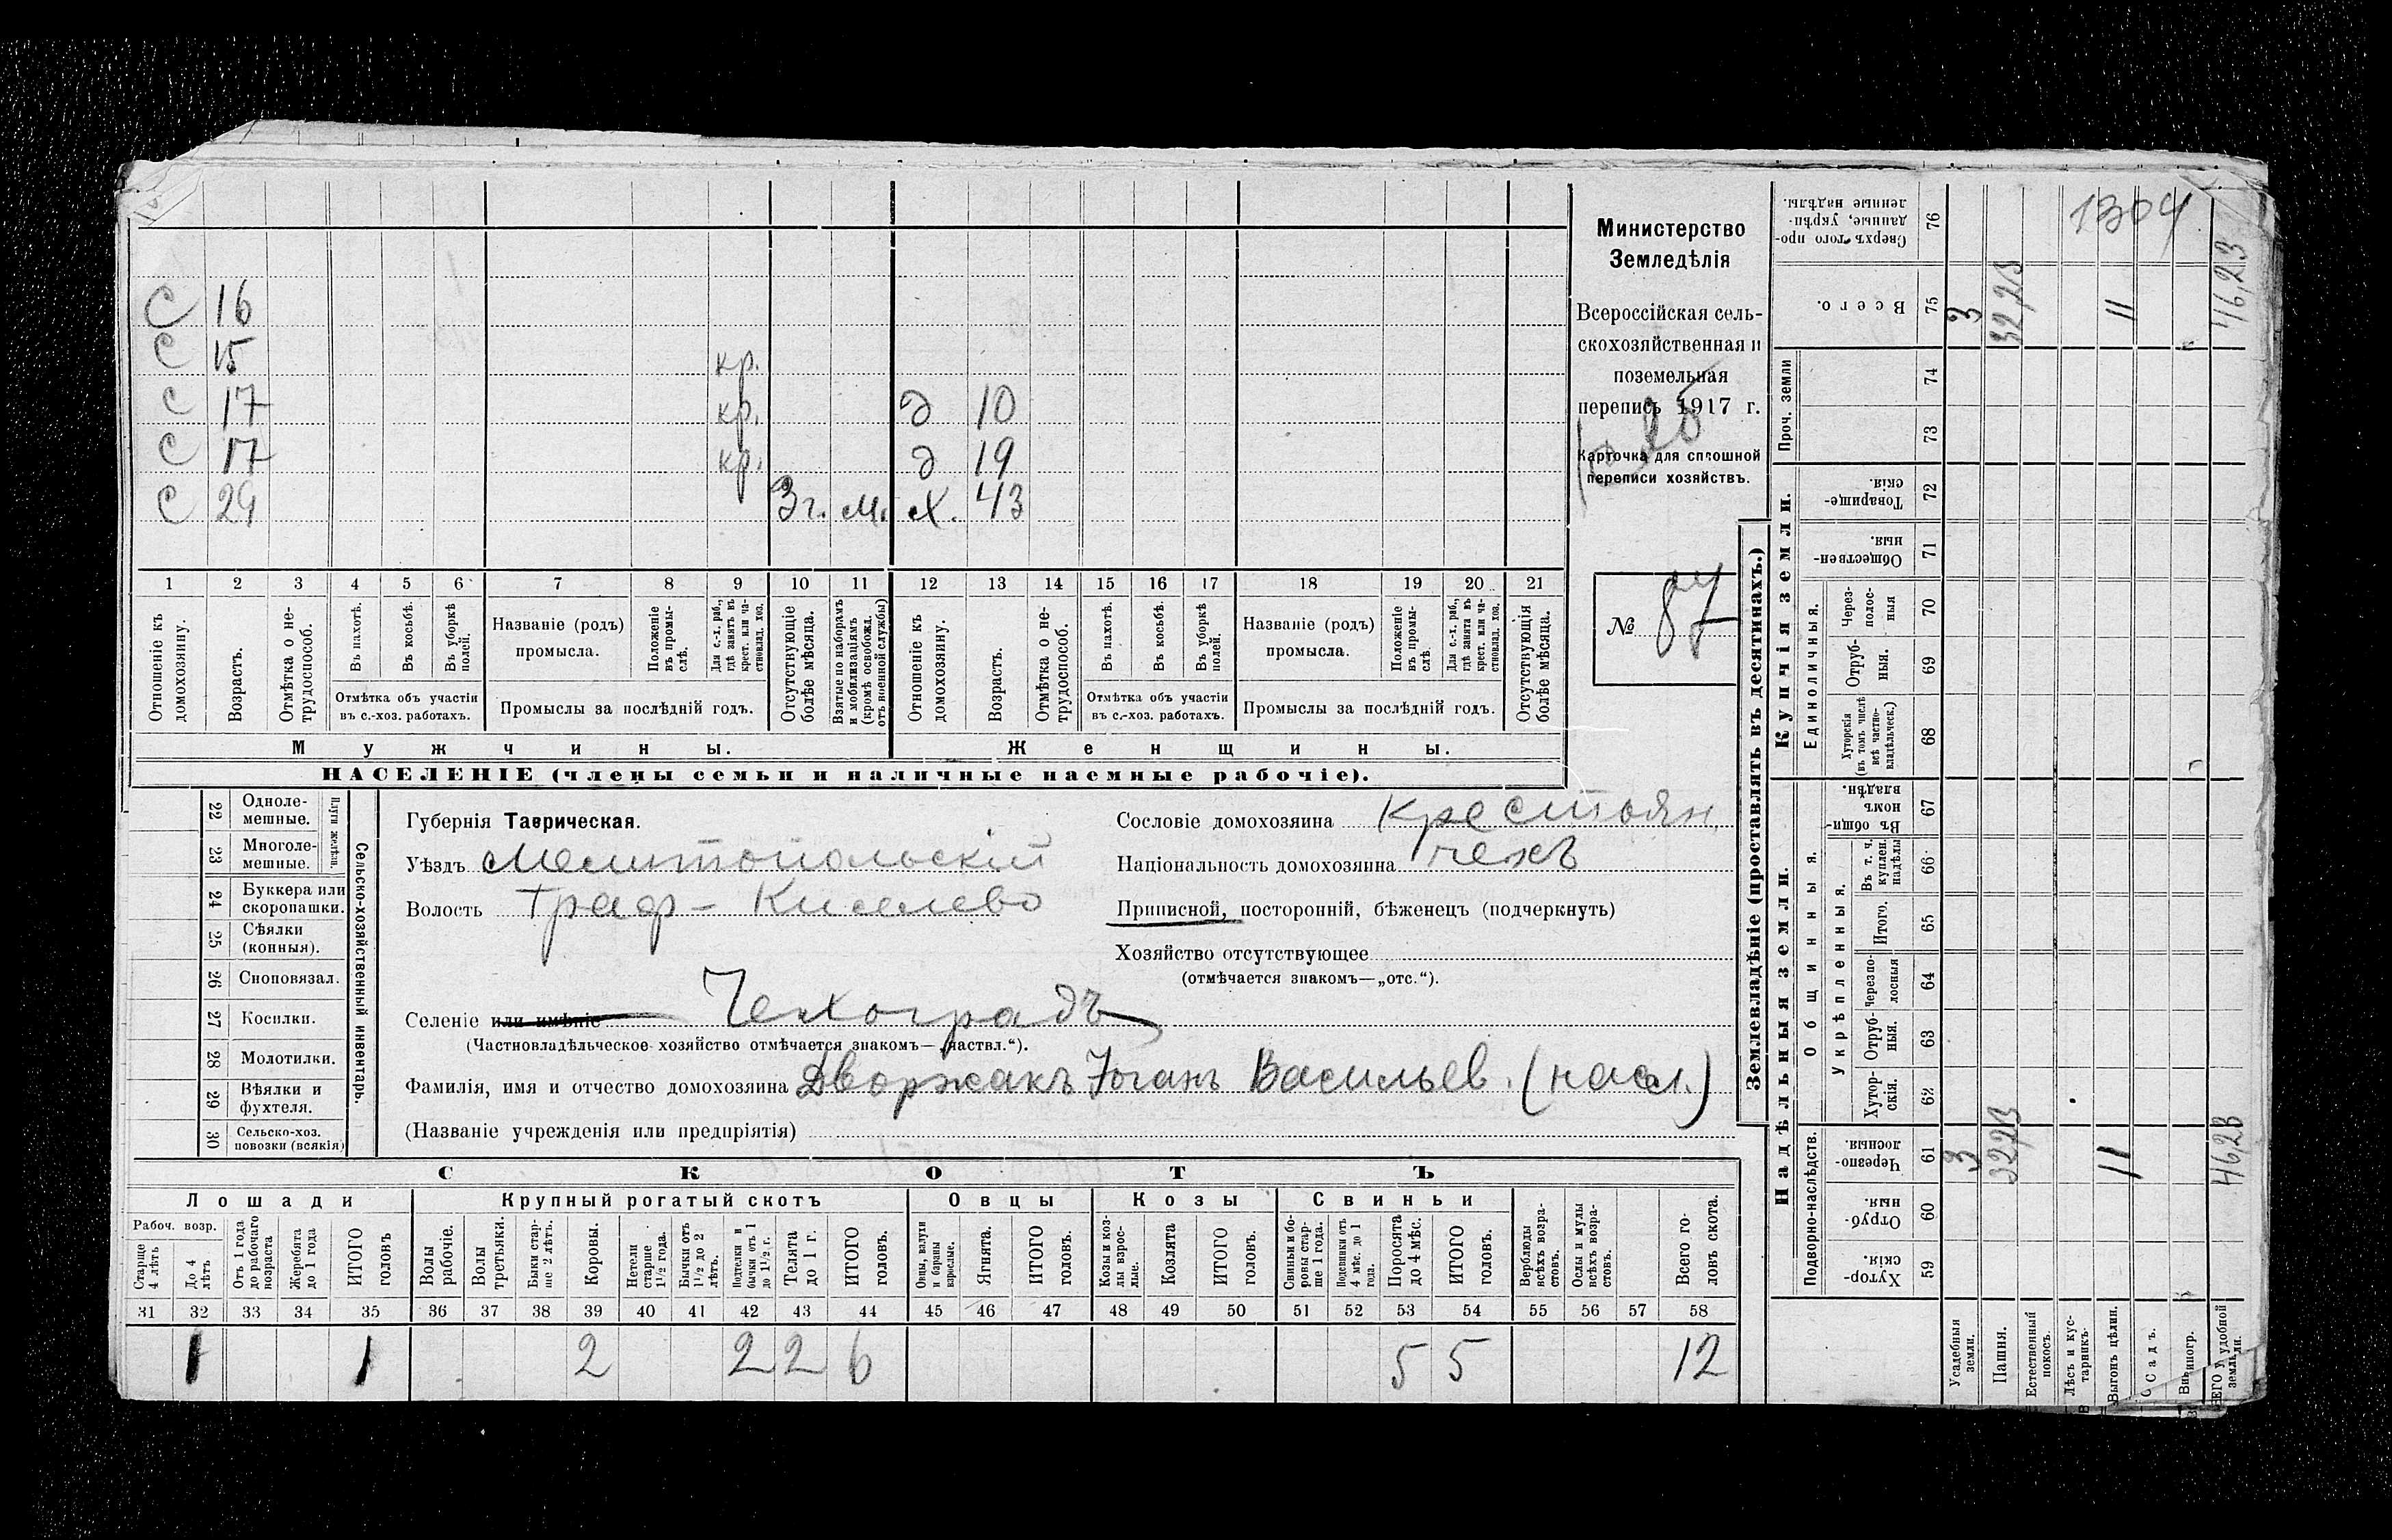 С 16
С 15 кр.
С 17 кр. д 10
С 17 кр. д 19
С 29 3 г. м. х. 43
1 2 3 4 5 6 7 8 9 10 11 12 13 14 15 16 17 18 19 20 21
Отношеніе къ домохозяину.
Возрастъ.
Отмѣтка о нетрудоспособ.
Въ пахотѣ.
Въ косьбѣ.
Въ уборкѣ полей.
Отмѣтка объ участіи въ с.-хоз. работахъ.
Названіе (родъ) промысла.
Положеніе въ промыслѣ.
Для с.-х. раб., гдѣ занятъ въ крест. или частновлад. хоз.
Промыслы за послѣдній годъ.
Отсутствующіе болѣе мѣсяца.
Взятые по наборамъ и мобилизаціямъ (кромѣ освобожд. отъ военной службы)
Отношеніе къ домохозяину.
Возрастъ.
Отмѣтка о нетрудоспособ.
Въ пахотѣ.
Въ косьбѣ.
Въ уборкѣ полей.
Отмѣтка объ участіи въ с.-хоз. работахъ.
Названіе (родъ) промысла.
Положеніе въ промыслѣ.
Для с.-х. раб., гдѣ занята въ крест. или частновлад. хоз.
Промыслы за послѣдній годъ.
Отсутствующія болѣе мѣсяца.
Мужчины.
Женщины.
НАСЕЛЕНІЕ (члены семьи и наличные наемные рабочіе).
Министерство
Земледѣлія
Всероссійская сель-
скохозяйственная и
поземельная
перепись 1917 г.
Карточка для сплошной
переписи хозяйствъ.
№ 87
22 Однолемешные.
23 Многолемешные.
24 Буккера или скоропашки.
25 Сѣялки (конныя).
26 Сноповязал.
27 Косилки.
28 Молотилки.
29 Вѣялки и фухтеля.
30 Сельско-хоз. повозки (всякія)
Плуги желѣзн.
Сельско-хозяйственный инвентарь.
Губернія Таврическая.
Уѣздъ Мелитопольскій
Волость Граф-Киселево
Селеніе или имѣніе Чехоградъ
(Частновладѣльческое хозяйство отмѣчается знакомъ—„частвл.“).
Фамилія, имя и отчество домохозяина Дворжакъ Іоганъ Васильев. (насл.)
(Названіе учрежденія или предпріятія)
Сословіе домохозяина Крестьян.
Національность домохозяина чехъ
Приписной, посторонній, бѣженецъ (подчеркнуть)
Хозяйство отсутствующее
(отмѣчается знакомъ—„отс.“).
СКОТЪ
Лошади
Крупный рогатый скотъ
Овцы
Козы
Свиньи
Рабоч. возр.
Старше 4 лѣтъ
До 4 лѣтъ
Отъ 1 года до рабочаго возраста
Жеребята до 1 года
ИТОГО головъ
Волы рабочіе.
Волы третьяки.
Быки старше 2 лѣтъ.
Коровы.
Нетели старше 1½ года.
Бычки отъ 1½ до 2 лѣтъ.
Подтелки и бычки отъ 1 до 1½ г.
Телята до 1 г.
ИТОГО головъ.
Овцы, валухи и бараны взрослые.
Ягнята.
ИТОГО головъ.
Козы и козлы взрослые.
Козлята
ИТОГО головъ.
Свиньи и боровы старше 1 года.
Подсвинки отъ 4 мѣс. до 1 года.
Поросята до 4 мѣс.
ИТОГО головъ.
Верблюды всѣхъ возрастовъ.
Ослы и мулы всѣхъ возрастовъ.
Всего головъ скота.
31 32 33 34 35 36 37 38 39 40 41 42 43 44 45 46 47 48 49 50 51 52 53 54 55 56 57 58
1 1 2 2 2 6 5 5 12
Землевладѣніе (проставлять въ десятинахъ.)
Купчія земли.
Надѣльныя земли.
Сверхъ того проданные, укрѣпленные надѣлы. 76
1304
Всего. 75
3 32,23 11 46,23
Проч. земли 74 73
Товарищескія. 72
Общественныя. 71
Единоличныя.
Черезполосныя 70
Отрубныя. 69
Хуторскія (въ томъ числѣ всѣ частновладѣльческ.) 68
Общинныя.
Въ общинномъ владѣн. 67
Укрѣпленныя.
Въ т. ч. куплен. надѣлы 66
Итого. 65
Черезполосныя 64
Отрубныя. 63
Хуторскія. 62
Подворно-наслѣдств.
Черезполосныя. 61
3 32,23 11 46,23
Отрубныя. 60
Хуторскія. 59
Усадебныя земли.
Пашня.
Естественный покосъ.
Лѣсъ и кустарникъ
Выгонъ цѣлин.
Садъ.
Виноогр.
удобной земли.